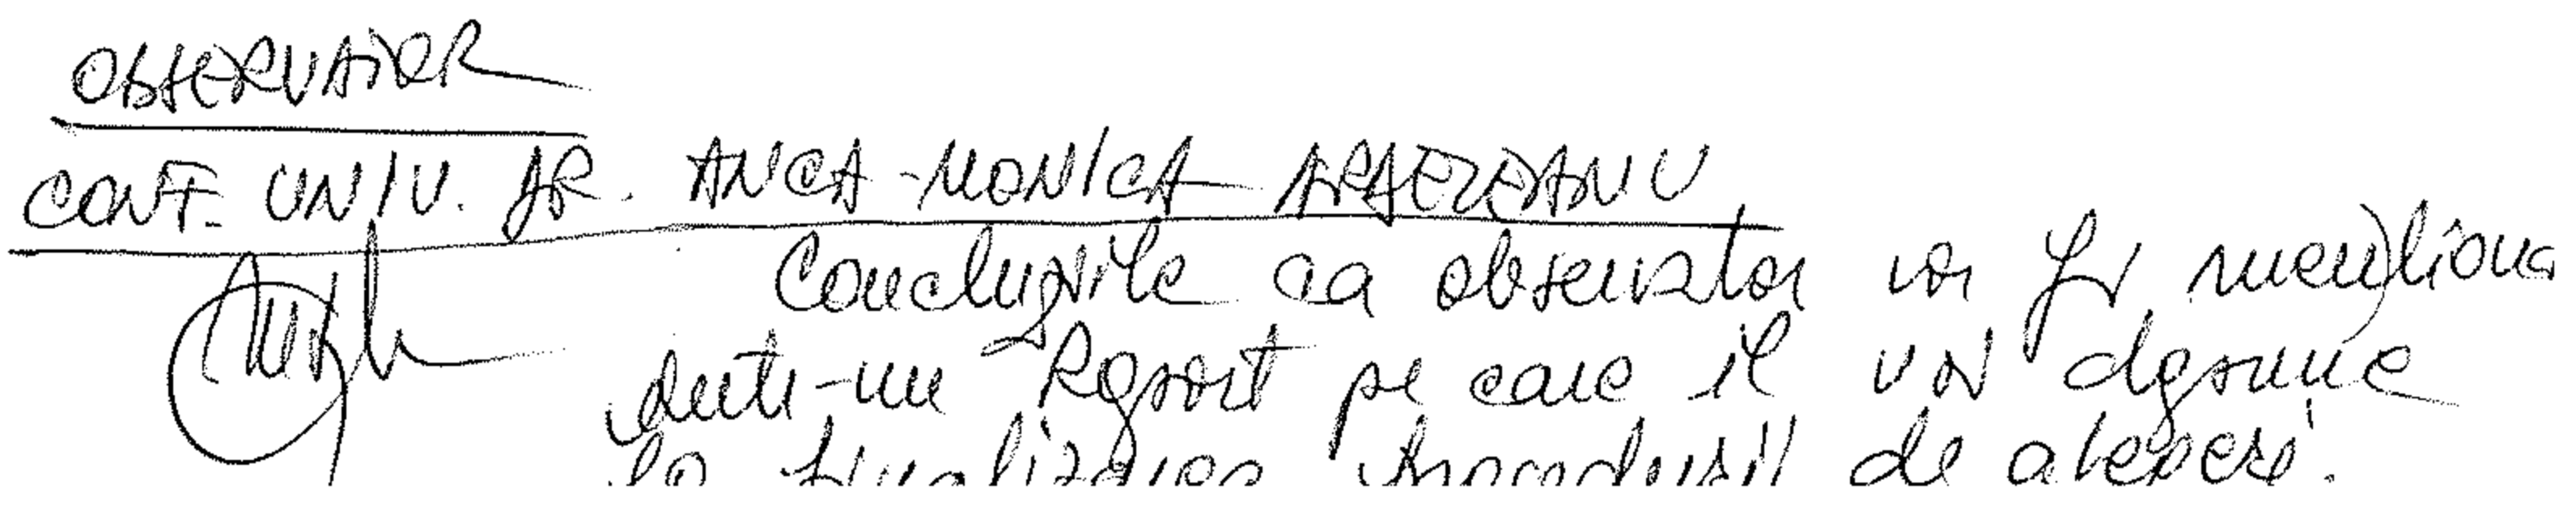 OBSERVATOR
CONF. UNIV. DR. ANCA-MONICA ARDELEANU
Concluziile ca observator vor fi menționa
într-un Raport pe care îl voi depune
la finalizarea procedurii de alegeri.